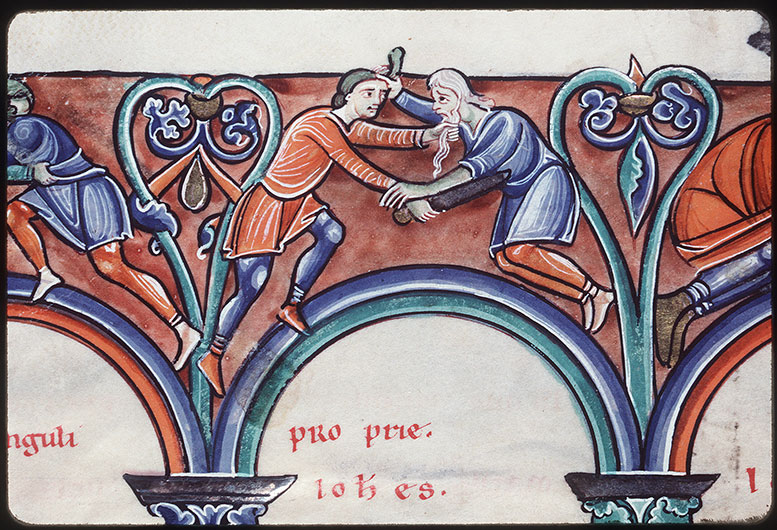 nguli
pro prie.
ioh es.